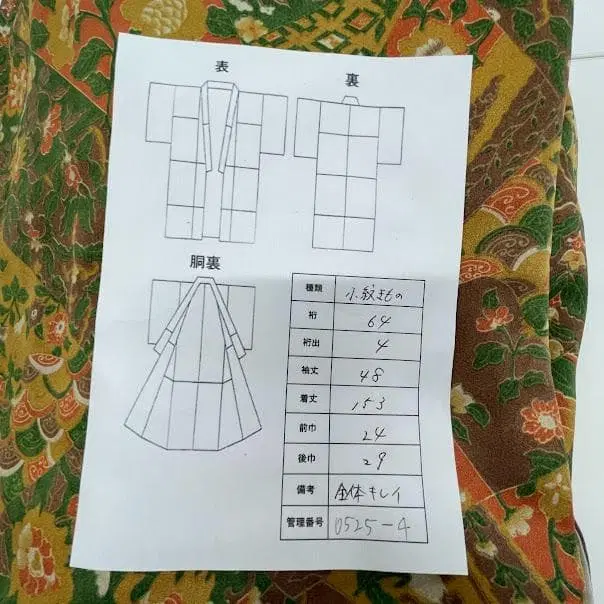 表 裏
胴裏
種類 小紋きもの
裄 64
裄出 4
袖丈 48
着丈 153
前巾 24
後巾 29
備考 全体キレイ
管理番号 0525-4